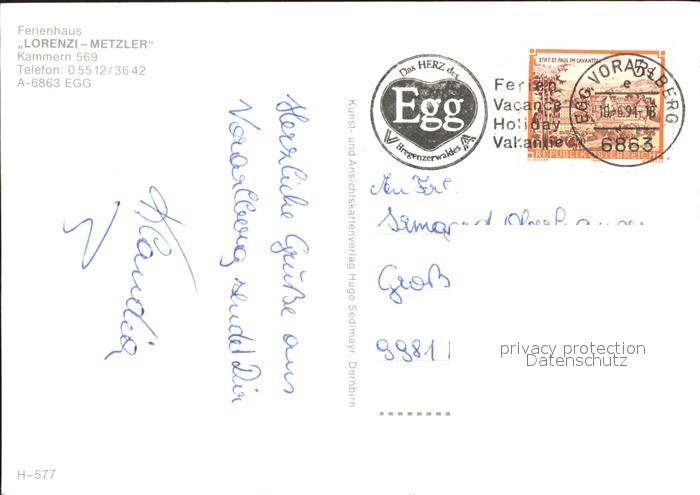 Ferienhaus
„LORENZI – METZLER"
Kammern 569
Telefon: 0 55 12 / 36 42
A-6863 EGG
Das HERZ des
Egg
Bregenzerwaldes
Ferien
Vacance
Holiday
Vakantie
STIFT ST. PAUL IM LAVANTTAL
REPUBLIK ÖSTERREICH
EGG, VORARLBERG
6863
Herrliche Grüße aus
Vorarlberg sendet Dir
Klaudia
Kunst- und Ansichtskartenverlag Hugo Sedlmayr, Dornbirn
An Frl.
Irmgard
Groß
9981
privacy protection
Datenschutz
H-577